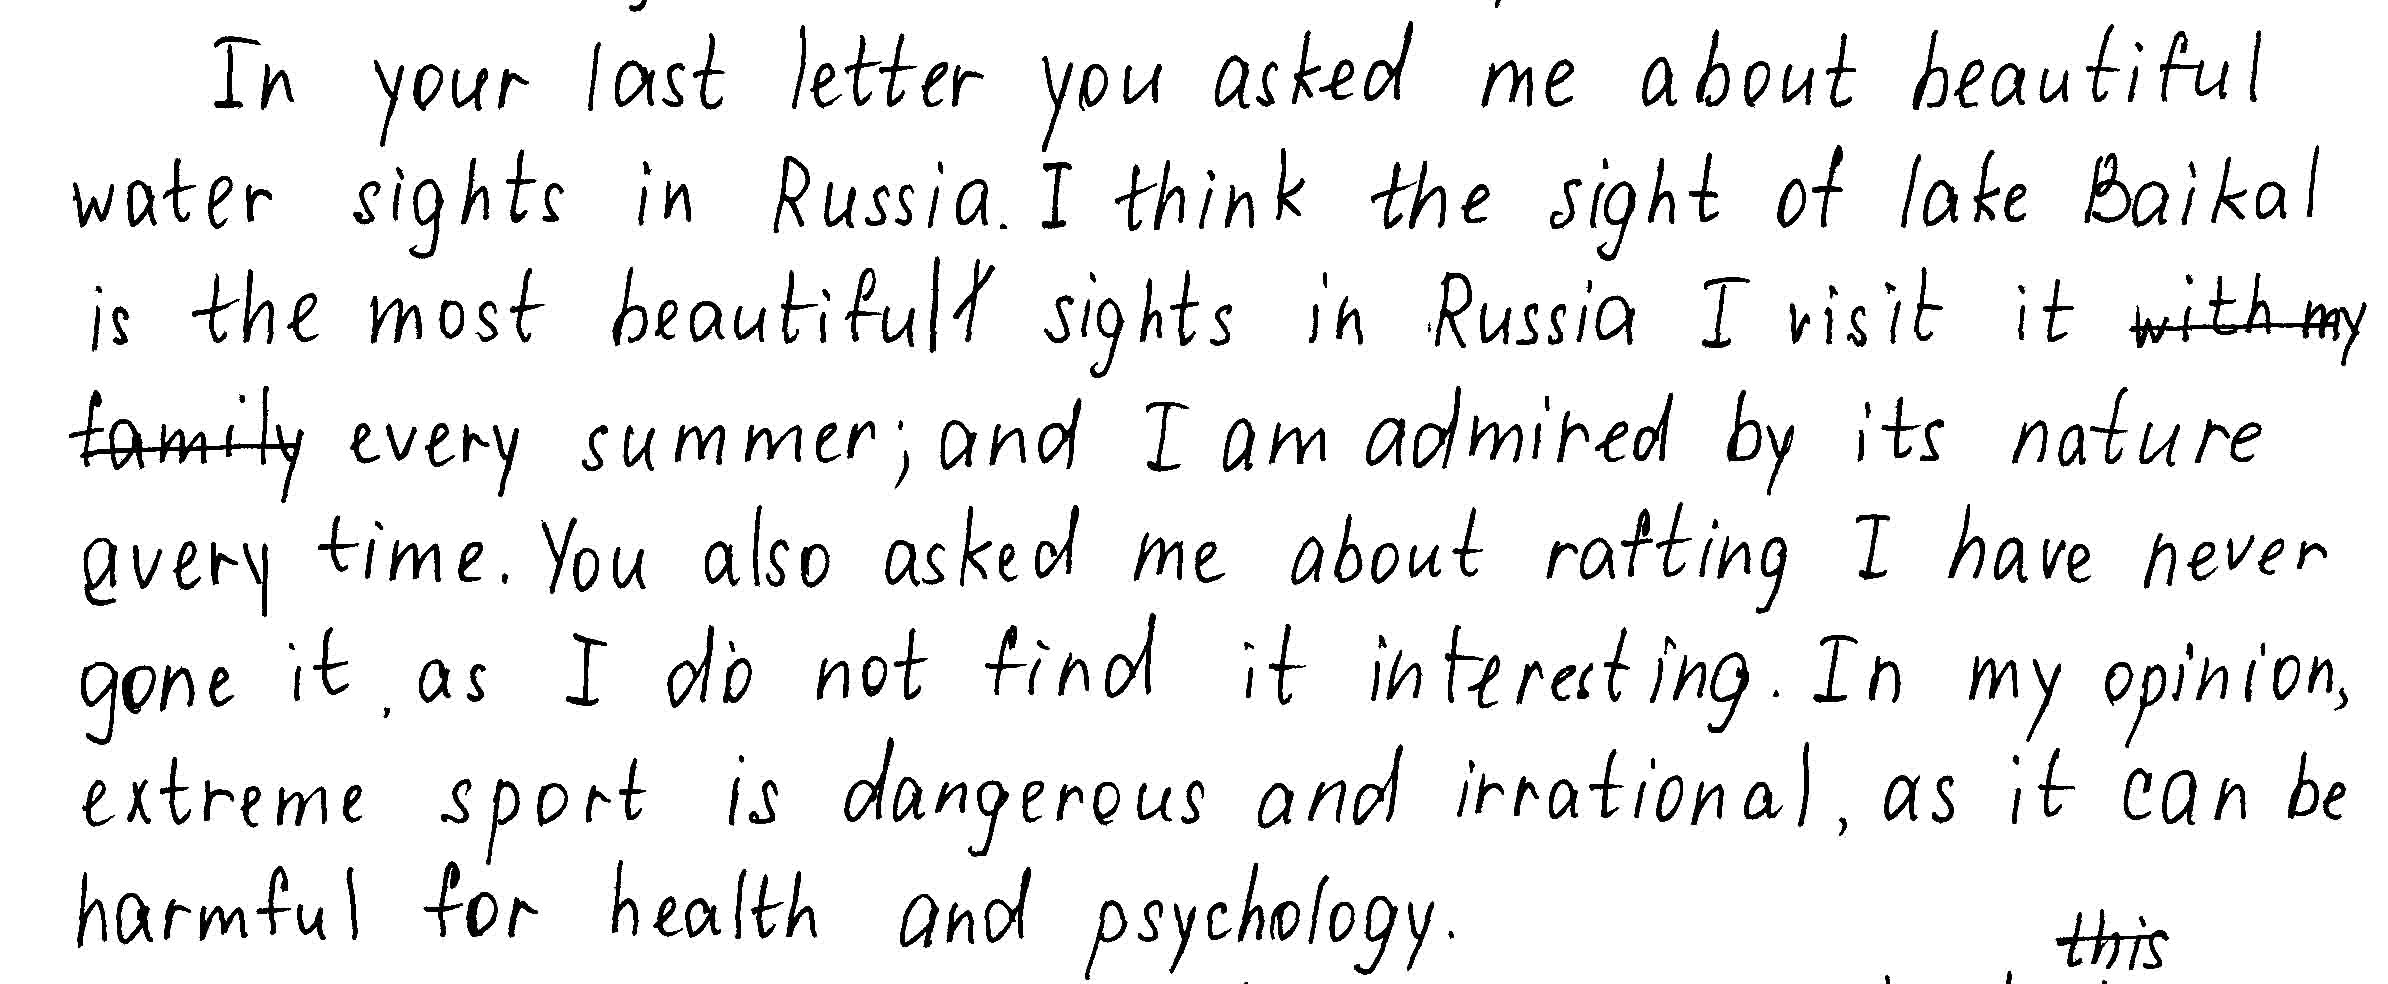 In your last letter you asked me about beautiful
water sights in Russia. I think the sight of lake Baikal
is the most beautiful sights in Russia I visit it with my
family every summer; and I am admired by its nature
every time. You also asked me about rafting I have never
gone it, as I do not find it interesting. In my opinion,
extreme sport is dangerous and irrational, as it can be
harmful for health and psychology.
this